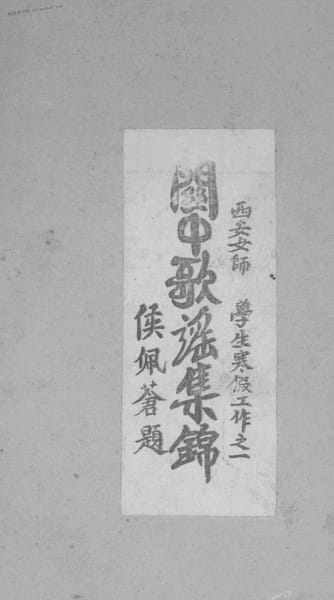 西安女師 學生寒假工作之一
關中歌謡集錦
侯佩蒼題